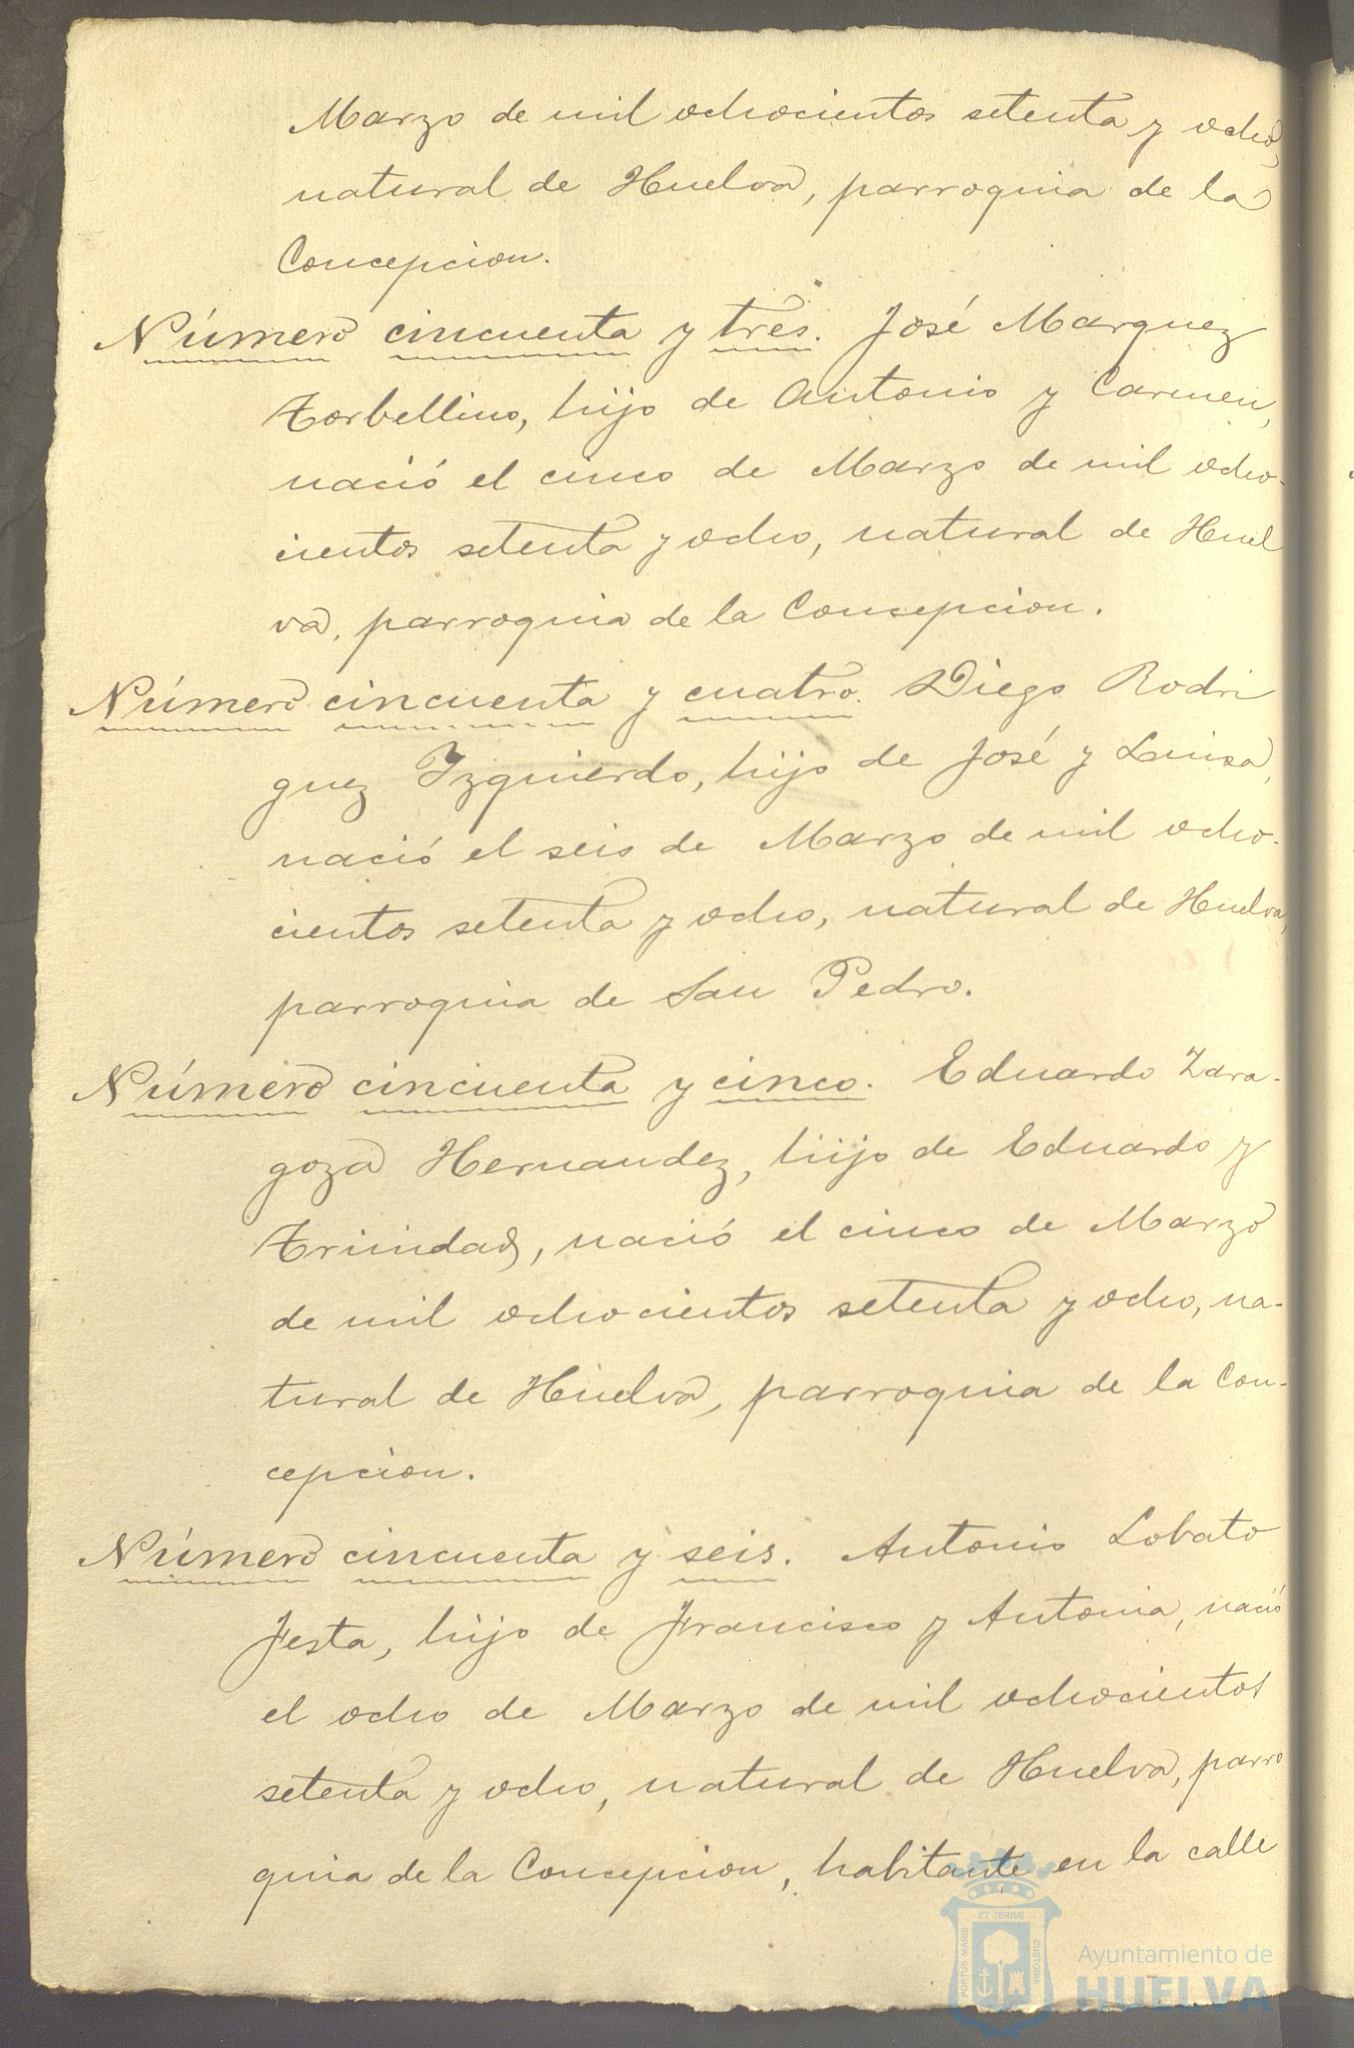 Marzo de mil ochocientos setenta y ocho,
natural de Huelva, parroquia de la
Concepcion.
Número cincuenta y tres. José Marquez
Torbellino, hijo de Antonio y Carmen,
nació el cinco de Marzo de mil ocho-
cientos setenta y ocho, natural de Huel
va, parroquia de la Concepcion.
Número cincuenta y cuatro. Diego Rodri
guez Izquierdo, hijo de José y Luisa,
nació el seis de Marzo de mil ocho-
cientos setenta y ocho, natural de Huelva,
parroquia de San Pedro.
Número cincuenta y cinco. Eduardo Zara-
goza Hernandez, hijo de Eduardo y
Trinidad, nació el cinco de Marzo
de mil ochocientos setenta y ocho, na-
tural de Huelva, parroquia de la Con-
cepcion.
Número cincuenta y seis. Antonio Lobato
Jesta, hijo de Francisco y Antonia, nació
el ocho de Marzo de mil ochocientos
setenta y ocho, natural de Huelva, parro
quia de la Concepcion, habitante en la calle
ET TERRÆ
PORTUS MARIS
CUSTODIA
Ayuntamiento de
HUELVA